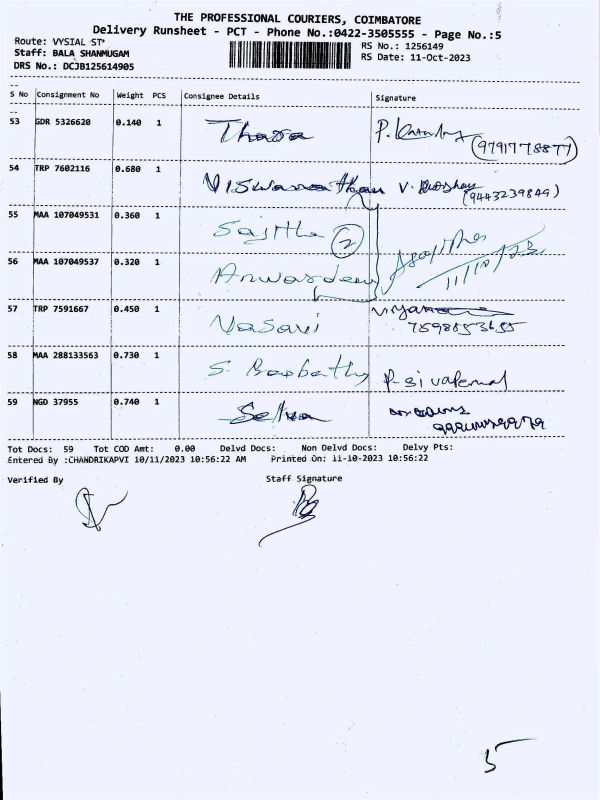 THE PROFESSIONAL COURIERS, COIMBATORE
Delivery Runsheet - PCT - Phone No.:0422-3505555 - Page No.:5
Route: VYSIAL ST*
Staff: BALA SHANMUGAM
DRS No.: DCJB125614905
RS No.: 1256149
RS Date: 11-Oct-2023
S No Consignment No Weight PCS Consignee Details Signature
53 GDR 5326620 0.140 1
(9791778877)
54 TRP 7602116 0.680 1 Viswanathan
(9443239849)
55 MAA 107049531 0.360 1 Sajitha 2
56 MAA 107049537 0.320 1 Anwardeen 11/10/23
57 TRP 7591667 0.450 1 Vasavi
58 MAA 288133563 0.730 1
59 NGD 37955 0.740 1 Selva
Tot Docs: 59 Tot COD Amt: 0.00 Delvd Docs: Non Delvd Docs: Delvy Pts:
Entered By :CHANDRIKAPVI 10/11/2023 10:56:22 AM Printed On: 11-10-2023 10:56:22
Verified By Staff Signature
5